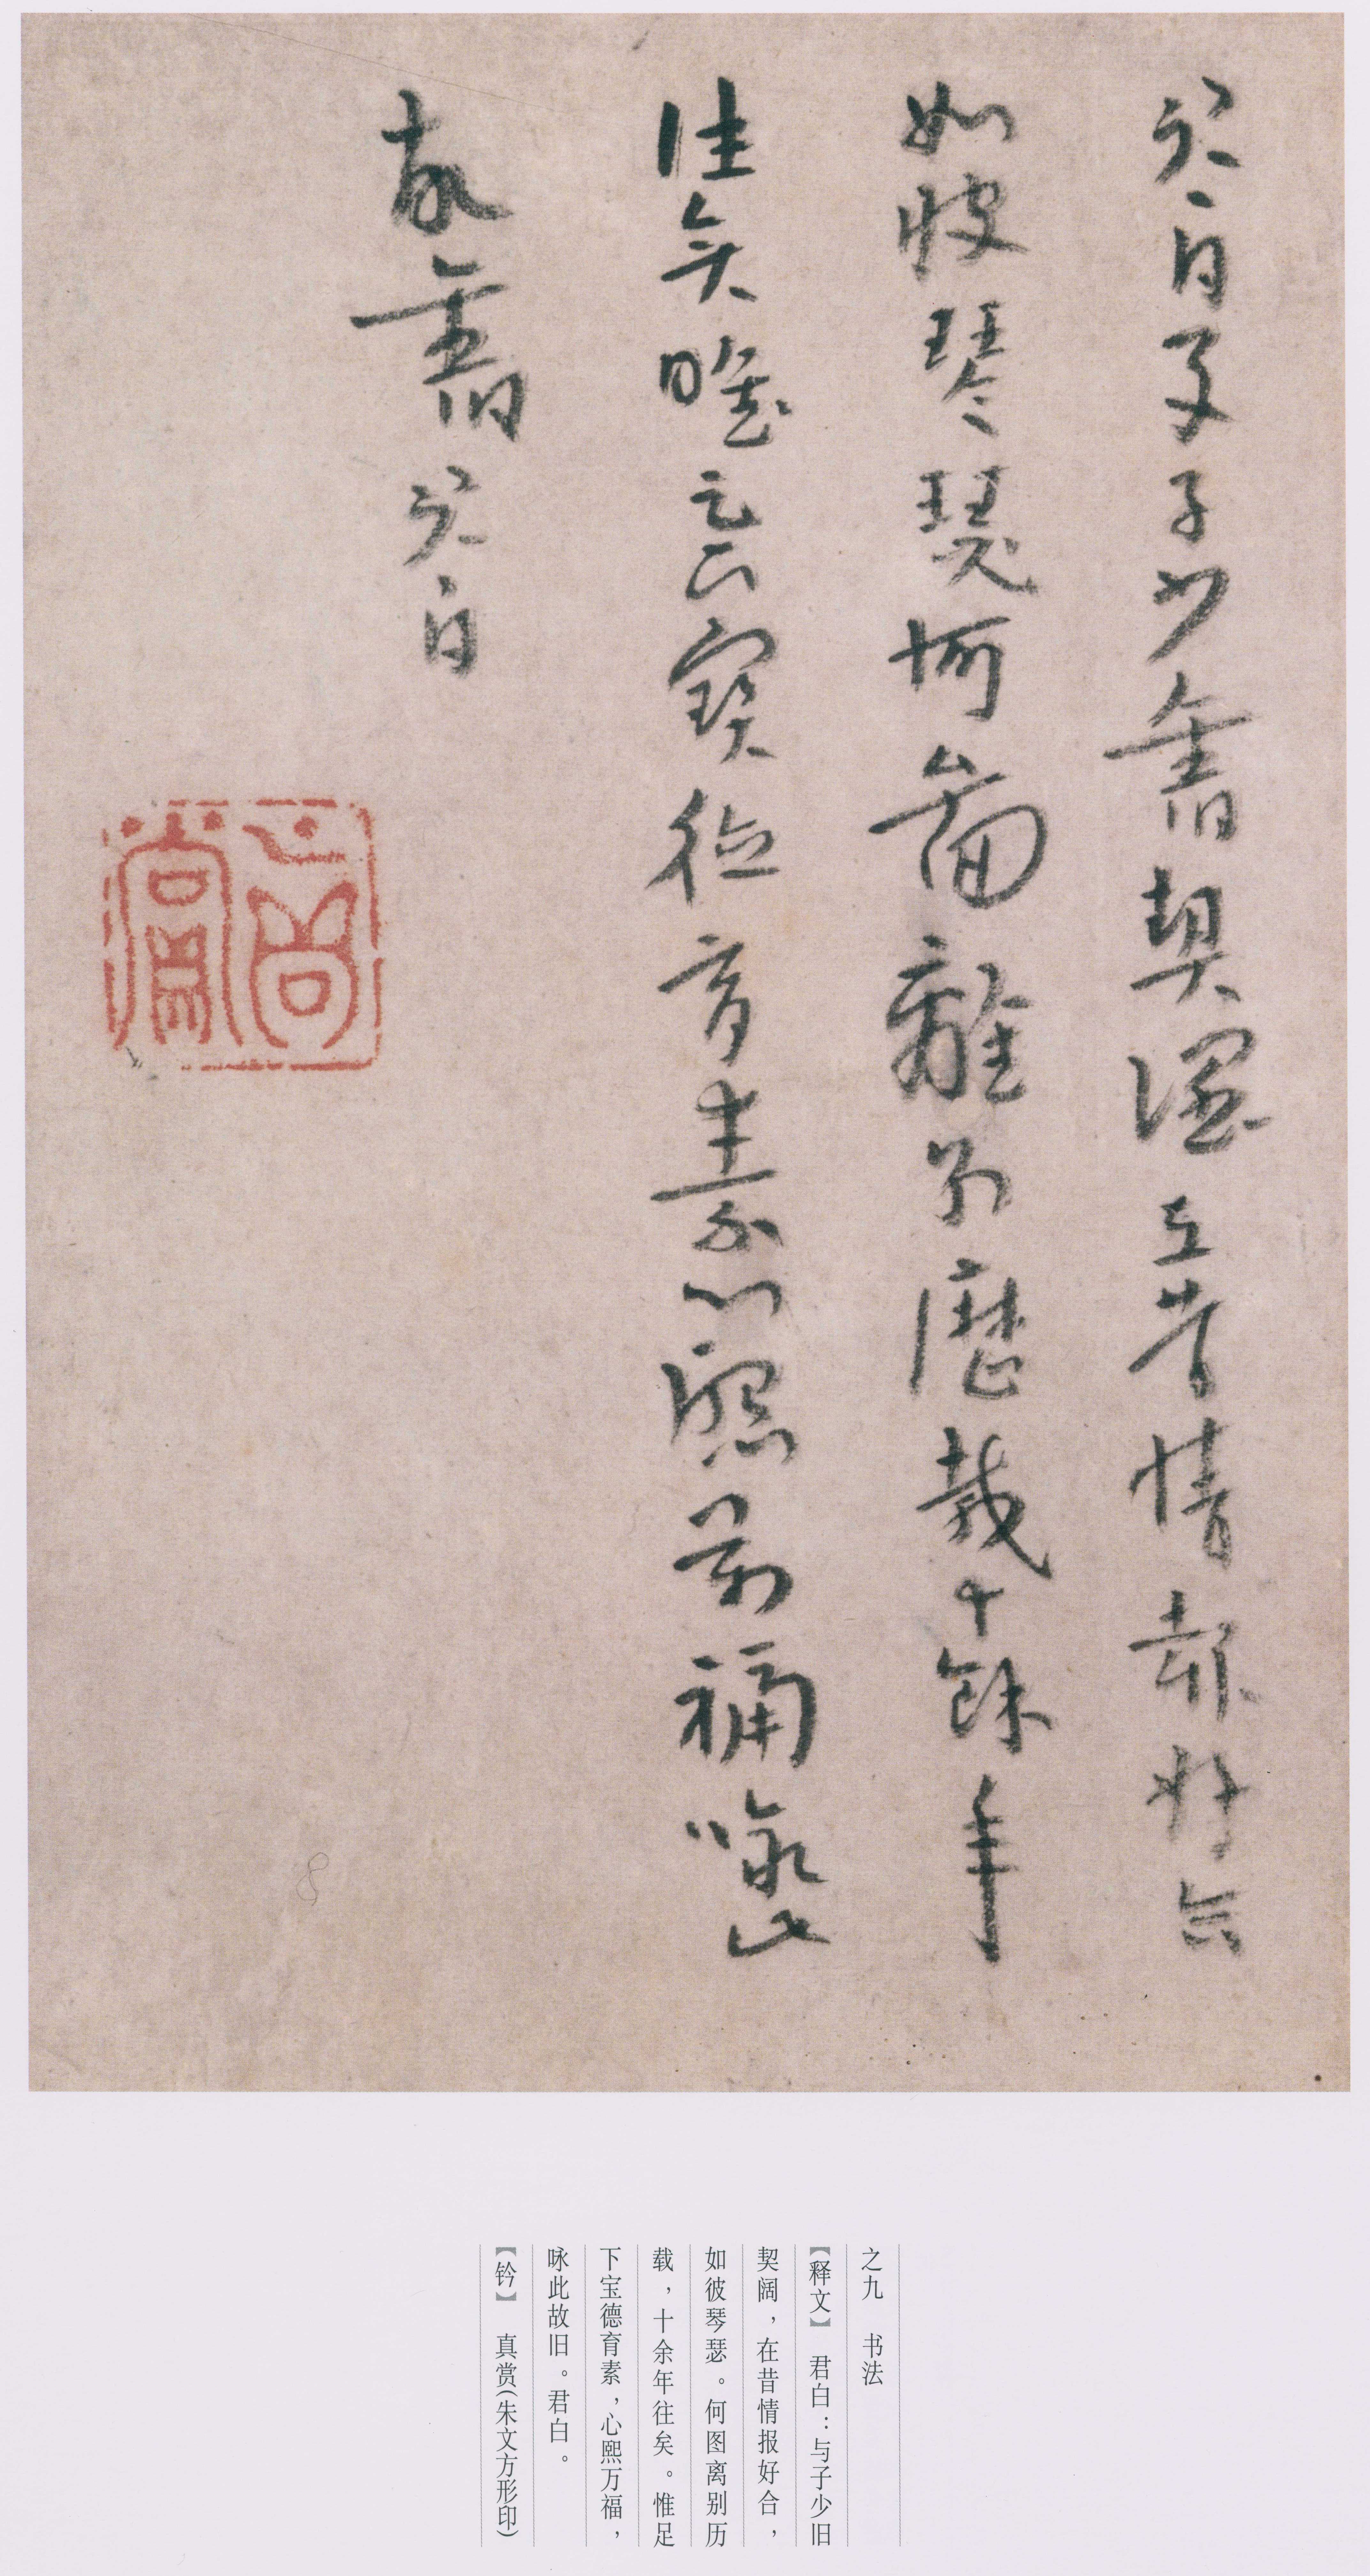 君白与子少舊契濶在昔情款好合
如彼琴瑟何啚離別歷載十餘年
往矣唯足下寶德育素心熙萬福詠此
故舊君白
真賞
之九 书法
【释文】 君白：与子少旧
契阔，在昔情报好合，
如彼琴瑟。何图离别历
载，十余年往矣。惟足
下宝德育素，心熙万福，
咏此故旧。君白。
【钤】 真赏(朱文方形印)